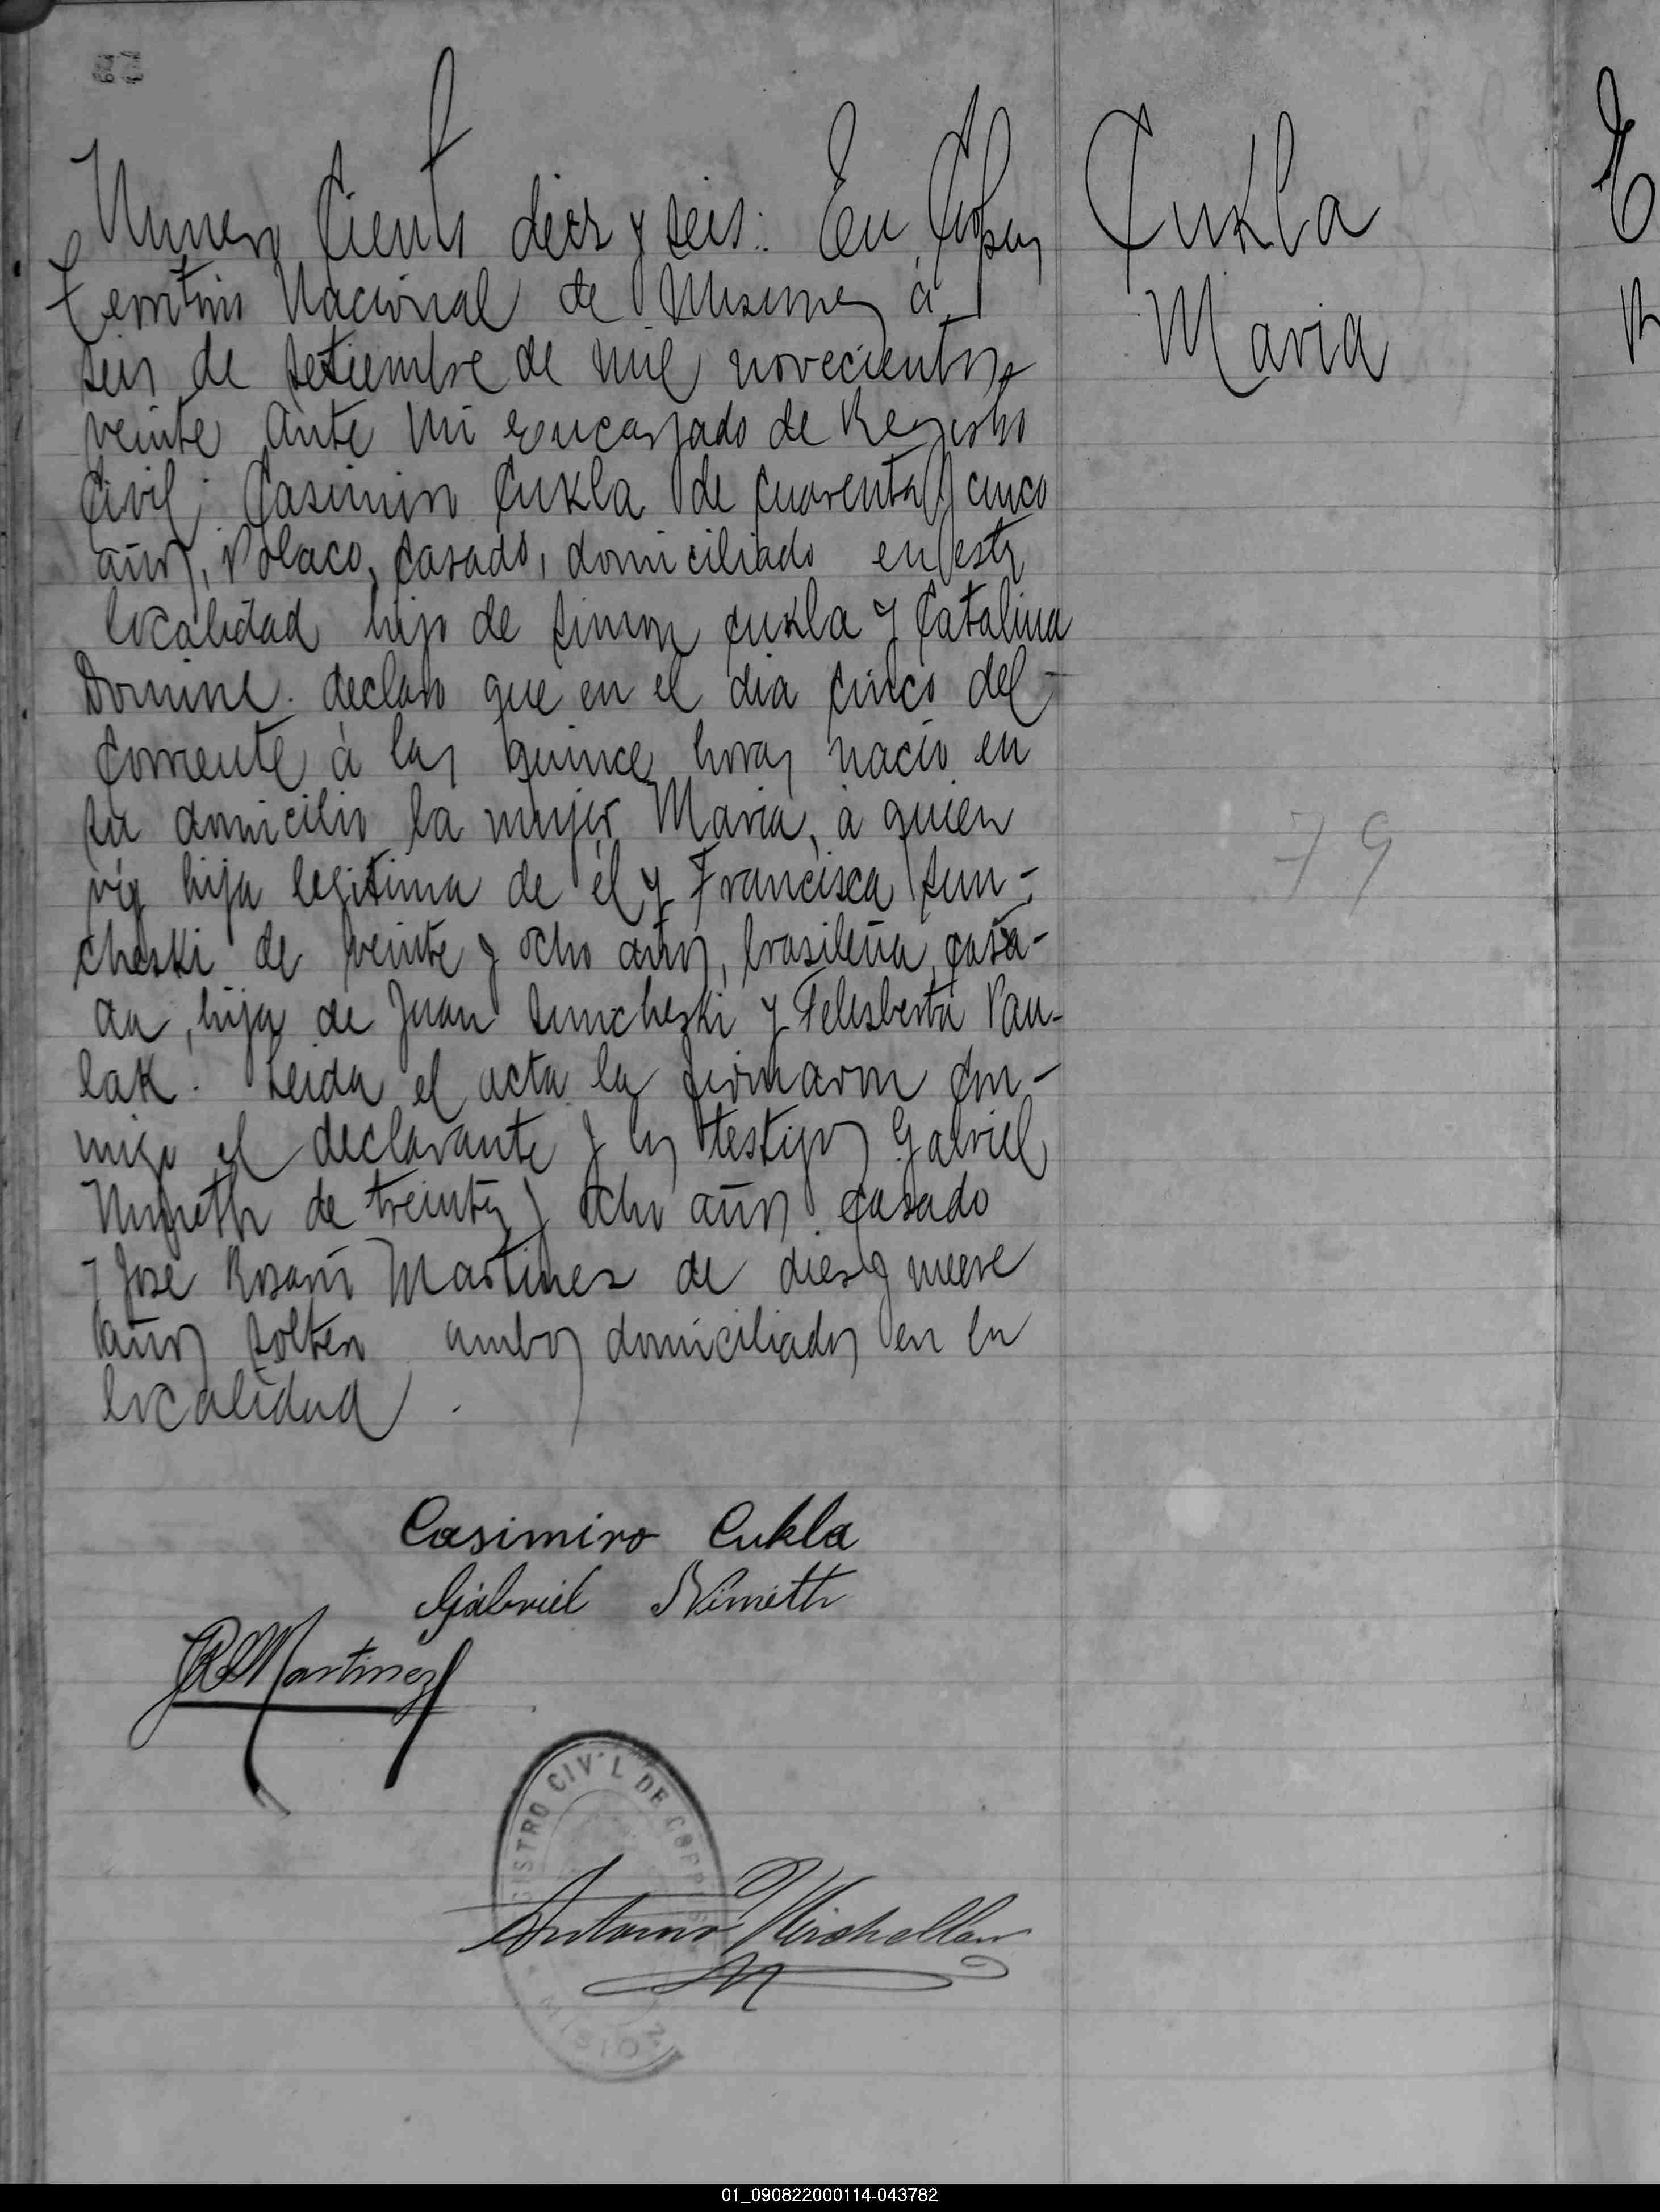 Numero Ciento diez y seis: En Corpus
Territorio Nacional de Misiones á
seis de setiembre de mil novecientos
veinte ante mi Encargado de Registro
Civil: Casimiro Cukla de cuarenta y cinco
años, Polaco, casado, domiciliado en esta
localidad hijo de Simon Cukla y Catalina
Domine. declaro que en el dia cinco del
corriente á las quince horas nació en
su domicilio la mujer Maria, á quien
vi, hija legitima de él y Francisca Sun-
cheski de veinte y ocho años, brasileña, casa-
da, hija de Juan Suncheski y Felisberta Pau-
lak. Leida el acta la firmaron con-
migo el declarante y los testigos Gabriel
Nimeth de treinta y ocho años casado
y José Rosario Martinez de diez y nueve
años soltero ambos domiciliados en la
localidad.
Casimiro Cukla
Gabriel Nimeth
JR Martinez
REGISTRO CIVIL DE CORPUS
Antonio
MISIONES
Cukla
Maria
79
01_090822000114-043782